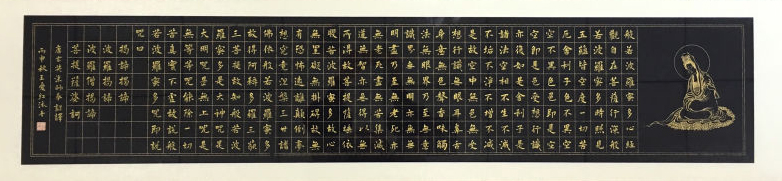 般若波羅蜜多心經
觀自在菩薩行深般
若波羅蜜多時照見
五蘊皆空度一切苦
厄舍利子色不異空
空不異色色即是空
空即是色受想行識
亦復如是舍利子是
諸法空相不生不滅
不垢不淨不增不減
是故空中無色無受
想行識無眼耳鼻舌
身意無色聲香味觸
法無眼界乃至無意
識界無無明亦無無
明盡乃至無老死亦
無老死盡無苦集滅
道無智亦無得以無
所得故菩提薩埵依
般若波羅蜜多故心
無罣礙無罣礙故無
有恐怖遠離顛倒夢
想究竟涅槃三世諸
佛依般若波羅蜜多
故得阿耨多羅三藐
三菩提故知般若波
羅蜜多是大神呪是
大明呪是無上呪是
無等等呪能除一切
苦真實不虛故說般
若波羅蜜多呪即說
呪曰
揭諦揭諦
波羅揭諦
波羅僧揭諦
菩提薩婆訶
唐玄奘法師奉詔譯
丙申秋王愛紅沐手